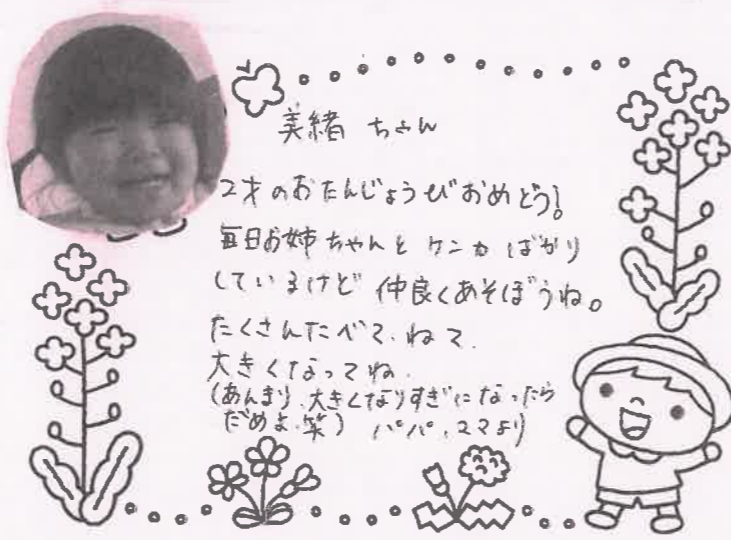 美緒 ちゃん
2才のおたんじょうびおめどう!
毎日お姉ちゃんと ケンカ ばかり
しているけど 仲良くあそぼうね。
たくさんたべて、ねて
大きくなってね.
(あんまり、大きくなりすぎになったら
だめよ.笑) パパ、ママより